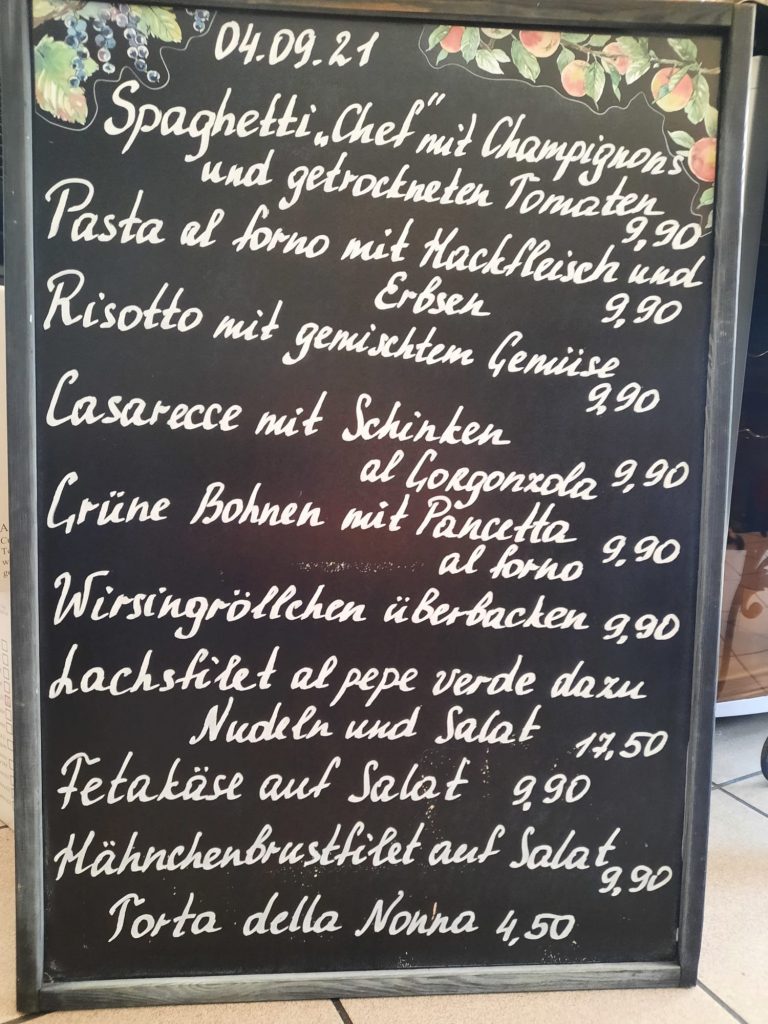 04.09.21
Spaghetti „Chef" mit Champignons
und getrockneten Tomaten
9,90
Pasta al forno mit Hackfleisch und
Erbsen 9,90
Risotto mit gemischtem Gemüise
9,90
Casarecce mit Schinken
al Gorgonzola 9,90
Grüne Bohnen mit Pancetta
al forno 9,90
Wirsingröllchen überbacken 9,90
Lachsfilet al pepe verde dazu
Nudeln und Salat 17,50
Fetakäse auf Salat 9,90
Hähnchenbrustfilet auf Salat
9,90
Torta della Nonna 4,50